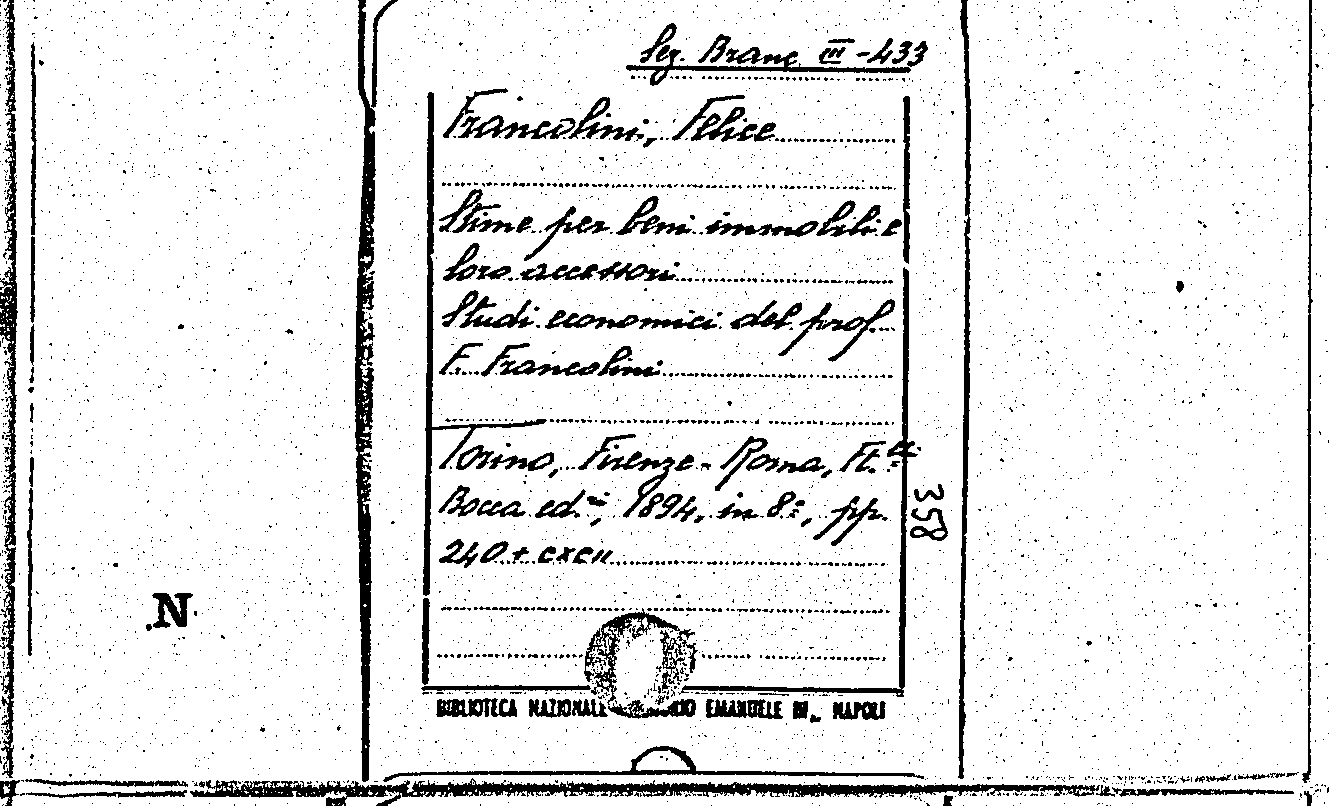 Sez. Branc. III-433
Francolini, Felice
Stime per beni immobili e
loro accessori
Studi economici del prof.
F. Francolini
Torino, Firenze-Roma, Ft.lli
Bocca ed.ri, 1894, in 8°, pp.
240 + CXCII
358
N
BIBLIOTECA NAZIONALE EMANUELE III - NAPOLI